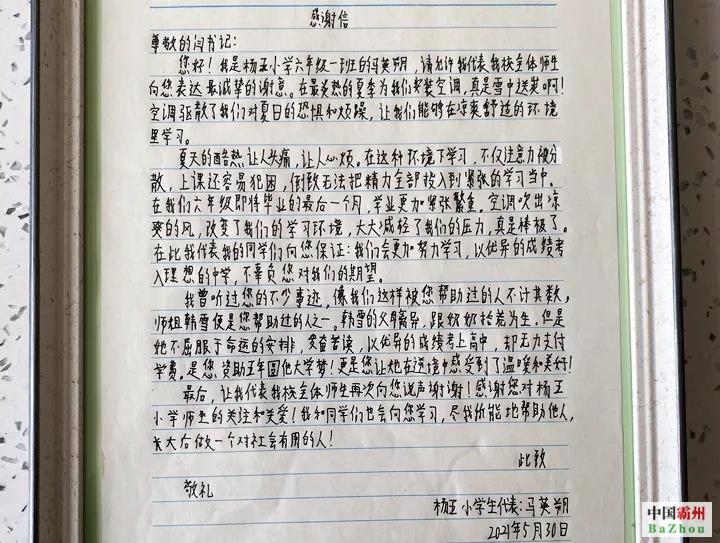 感谢信
尊敬的闫书记:
您好!我是杨王小学六年级一班的马英朔,请允许我代表我校全体师生
向您表达最诚挚的谢意。在最炎热的夏季为我们安装空调,真是雪中送炭啊!
空调驱散了我们对夏日的恐惧和烦躁,让我们能够在凉爽舒适的环境
里学习。
夏天的酷热让人头痛,让人心烦。在这种环境下学习,不仅注意力被分
散,上课还容易犯困,倒致无法把精力全部投入到紧张的学习当中。
在我们六年级即将毕业的最后一个月,学业更加紧张繁重。空调吹出凉
爽的风,改变了我们的学习环境,大大减轻了我们的压力,真是棒极了。
在此我代表我的同学们向您保证:我们会更加努力学习,以优异的成绩考
入理想的中学,不辜负您对我们的期望。
我曾听过您的不少事迹,像我们这样被您帮助过的人不计其数,
师姐韩雪便是您帮助过的人之一。韩雪的父母离异,跟奶奶拾荒为生,但是
她不屈服于命运的安排,发奋苦读,以优异的成绩考上高中,却无力支付
学费。是您资助五年圆他大学梦!更是您让她在逆境中感受到了温暖和美好!
最后,让我代表我校全体师生再次向您说声谢谢!感谢您对杨王
小学师生的关注和关爱!我和同学们也会向您学习,尽我所能地帮助他人,
长大后做一个对社会有用的人!
此致
敬礼
杨王小学生代表:马英朔
2021年5月30日
中国霸州
BaZhou